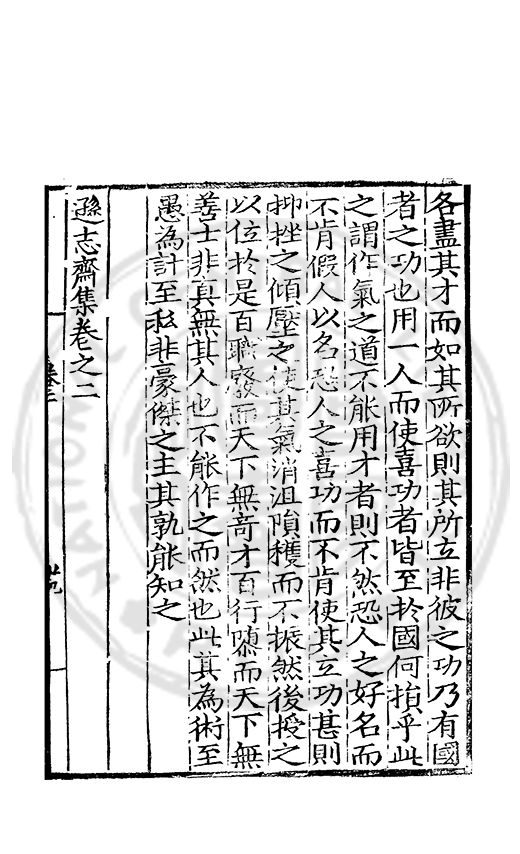 各盡其才而如其所欲則其所立非彼之功乃有國
者之功也用一人而使喜功者皆至於國何損乎此
之謂作氣之道不能用才者則不然恐人之好名而
不肯假人以名恐人之喜功而不肯使其立功甚則
抑挫之傾壓之使其氣消沮隕穫而不振然後授之
以位於是百職廢而天下無奇才百行隳而天下無
善士非真無其人也不能作之而然也此其為術至
愚為計至私非豪傑之主其孰能知之
遜志齋集卷之二